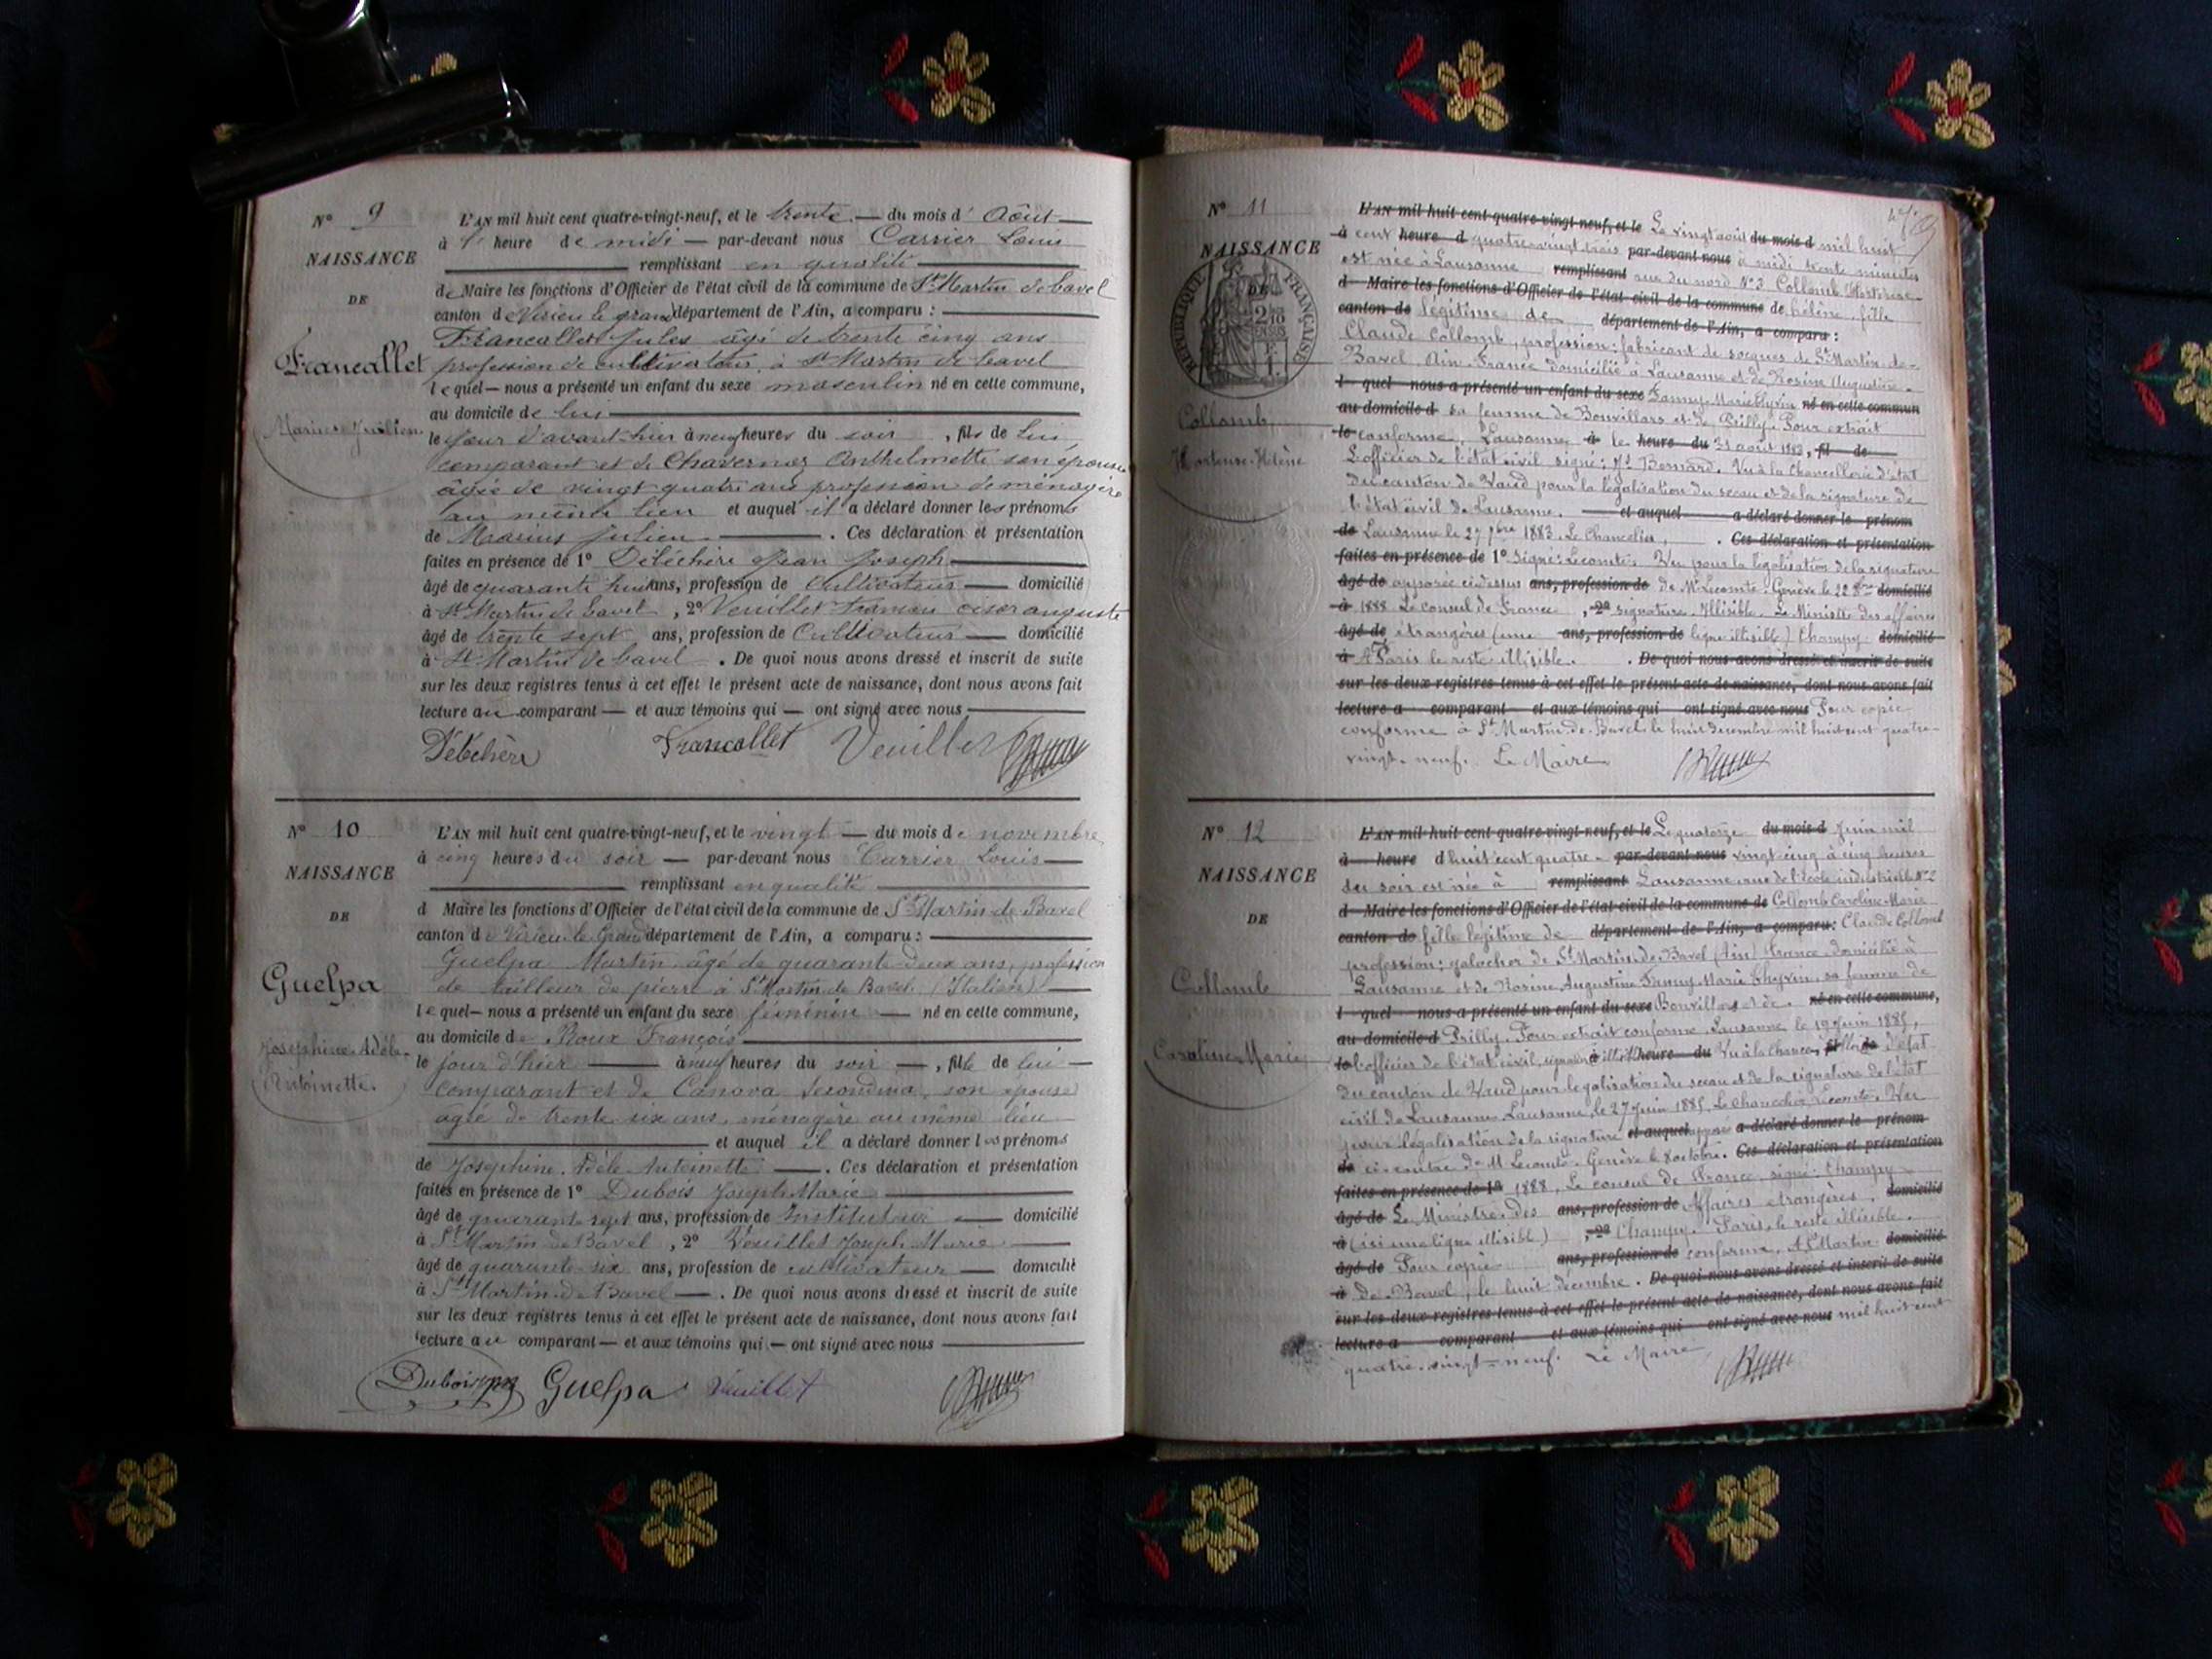 N° 9
NAISSANCE
DE
Francallet
Marius Julien
L'AN mil huit cent quatre-vingt-neuf, et le trente — du mois d' Août —
à l' heure de midi — par-devant nous Carrier Louis
remplissant en qualité
de Maire les fonctions d'Officier de l'état civil de la commune de St Martin de bavel
canton de Virieu le grand département de l'Ain, a comparu :
Francallet Jules âgé de trente cinq ans
profession de cultivateur à St Martin de bavel
lequel — nous a présenté un enfant du sexe masculin né en cette commune,
au domicile de lui
le jour d'avant-hier à neuf heures du soir , fils de lui
comparant et de Chavernoz Anthelmette son épouse
âgée de vingt quatre ans profession de ménagère
au même lieu et auquel il a déclaré donner les prénoms
de Marius Julien . Ces déclaration et présentation
faites en présence de 1° Débéchère Jean Joseph
âgé de quarante huit ans, profession de Cultivateur — domicilié
à St Martin de bavel , 2° Veuillet francois cisor auguste
âgé de trente sept ans, profession de Cultivateur — domicilié
à St Martin de bavel . De quoi nous avons dressé et inscrit de suite
sur les deux registres tenus à cet effet le présent acte de naissance, dont nous avons fait
lecture au comparant — et aux témoins qui — ont signé avec nous
Débéchère Francallet Veuillet
N° 10
NAISSANCE
DE
Guelpa
Joséphine Adèle
Antoinette.
L'AN mil huit cent quatre-vingt-neuf, et le vingt — du mois de novembre
à cinq heures du soir — par-devant nous Carrier Louis —
remplissant en qualité
d Maire les fonctions d'Officier de l'état civil de la commune de St Martin de Bavel
canton de Virieu le Grand département de l'Ain, a comparu :
Guelpa Martin âgé de quarante-deux ans, profession
de tailleur de pierre à St Martin de Bavel (Italien)
lequel — nous a présenté un enfant du sexe féminin — né en cette commune,
au domicile de Roux François
le jour d'hier — à neuf heures du soir —, fille de lui —
comparant et de Canova Secondina, son épouse
âgée de trente six ans, ménagère au même lieu
et auquel il a déclaré donner les prénoms
de Joséphine Adèle Antoinette — . Ces déclaration et présentation
faites en présence de 1° Dubois Joseph Marie
âgé de quarante sept ans, profession de Instituteur — domicilié
à St Martin de Bavel , 2° Veuillet Joseph Marie —
âgé de quarante-six ans, profession de cultivateur — domicilié
à St Martin de Bavel — . De quoi nous avons dressé et inscrit de suite
sur les deux registres tenus à cet effet le présent acte de naissance, dont nous avons fait
lecture au comparant — et aux témoins qui — ont signé avec nous
Dubois Guelpa Veuillet
N° 11
NAISSANCE
DE
RÉPUBLIQUE FRANÇAISE
Collomb
Hortense-Hélène
L'AN mil huit cent quatre-vingt-neuf, et le Le vingt août du mois d mil huit
à cent heure d quatre-vingt trois par-devant nous à midi trente minutes
est née à Lausanne remplissant rue du nord N° 3 Collomb Hortense-
d Maire les fonctions d'Officier de l'état civil de la commune de hélène, fille
canton de légitime de département de l'Ain, a comparu :
Claude Collomb, profession : fabricant de socques de St Martin-de-
Bavel Ain France domicilié à Lausanne et de Rosine Augustine
l quel nous a présenté un enfant du sexe Fanny Marie né en cette commun
au domicile d sa femme de Bonvillars et de Prilly. Pour extrait
le conforme, Lausanne à le heure du 31 août 1883, fil de
L'officier de l'état civil signé : Bernard. Vu à la Chancellerie d'état
du canton de Vaud pour la légalisation du sceau et de la signature de
l'état civil de Lausanne. et auquel a déclaré donner le prénom
de Lausanne le 27 1883 Le Chancelier, . Ces déclaration et présentation
faites en présence de 1° signé : Lecomte. Vu pour la légalisation de la signature
âgé de apposée ci-dessus ans, profession de de Mr Lecomte. Genève le 22 domicilié
à 1888 Le consul de France , 2° signature Illisible. Le Ministre des affaires
âgé de étrangères (une ans, profession de ligne illisible) Champy domicilié
à Paris le reste illisible. . De quoi nous avons dressé et inscrit de suite
sur les deux registres tenus à cet effet le présent acte de naissance, dont nous avons fait
lecture a comparant et aux témoins qui ont signé avec nous Pour copie
conforme à St Martin-de-Bavel, le huit décembre mil huit cent quatre-
vingt-neuf. Le Maire
N° 12
NAISSANCE
DE
Collomb
Caroline-Marie
L'AN mil huit cent quatre-vingt-neuf, et le Le quatorze du mois d Juin mil
à heure d huit cent quatre- par-devant nous vingt cinq à cinq heures
du soir est née à remplissant Lausanne, rue de l'école industrielle N° 2
d Maire les fonctions d'Officier de l'état civil de la commune de Collomb Caroline-Marie
canton de fille légitime de département de l'Ain, a comparu : Claude Collomb
profession : galocher de St Martin-de-Bavel (Ain) France domicilié à
Lausanne et de Rosine Augustine Fanny Marie sa femme de
l quel nous a présenté un enfant du sexe Bonvillars et de né en cette commune,
au domicile d Prilly. Pour extrait conforme, Lausanne le 19 Juin 1885,
le l'officier de l'état civil, heure du Vu à la d'état
du canton de Vaud pour légalisation du sceau et de la signature de l'état
civil de Lausanne. Lausanne, le 27 Juin 1885. Le Chancelier Lecomte. Vu
pour légalisation de la signature et auquel a déclaré donner le prénom
de ci-contre de M Lecomte. Genève le 8 octobre. Ces déclaration et présentation
faites en présence de 1° 1888, Le consul de France, signé : Champy
âgé de Le Ministre des ans, profession de Affaires étrangères. domicilié
à (ici une ligne illisible) , 2° Champy. Paris, le reste illisible.
âgé de Pour copie ans, profession de conforme, A St Martin domicilié
à de Bavel, le huit décembre . De quoi nous avons dressé et inscrit de suite
sur les deux registres tenus à cet effet le présent acte de naissance, dont nous avons fait
lecture a comparant et aux témoins qui ont signé avec nous mil huit cent
quatre-vingt-neuf. Le Maire